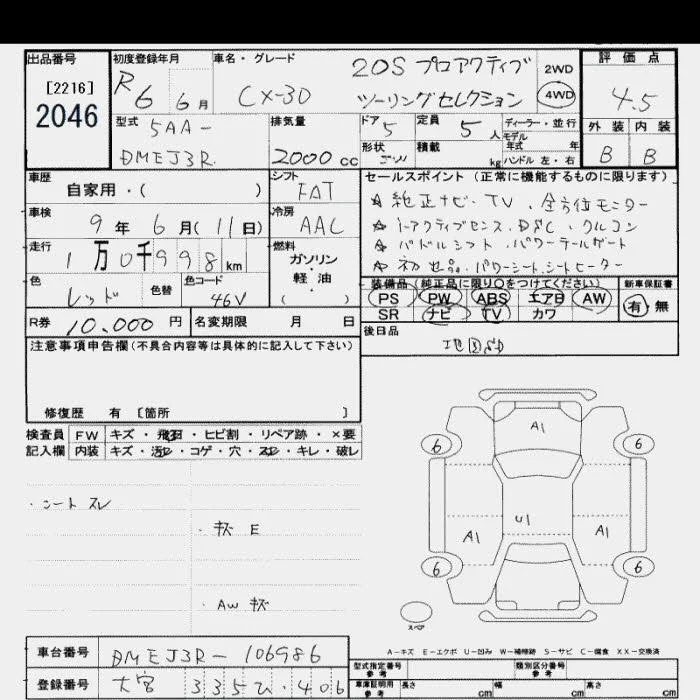 出品番号
[2216]
2046
初度登録年月
R6 6月
車名・グレード
CX-30
20S プロアクティブ
ツーリングセレクション
2WD
4WD
評価点
4.5
外装 内装
B B
型式
5AA-
DMEJ3R
排気量
2000cc
ドア 5
形状
定員 5人
積載 kg
ディーラー・並行
モデル年式 年
ハンドル 左・右
車歴
自家用・( )
シフト
FAT
冷房
AAC
車検
9年 6月(11日)
走行
1万0千998km
燃料
ガソリン
・
軽油
( )
色
レッド
色替
色コード
46V
R券 10.000円
名変期限 月 日
セールスポイント(正常に機能するものに限ります)
☆ 純正ナビ・TV・全方位モニター
☆ i-アクティブセンス・DSC・クルコン
☆ パドルシフト・パワーテールゲート
☆ パワーシート・シートヒーター
装備品(純正品に限り○をつけてください)
PS PW ABS エアB AW
SR ナビ TV カワ
新車保証書
有・無
後日品
注意事項申告欄(不具合内容等は具体的に記入して下さい)
修復歴 有 [箇所 ]
検査員記入欄
FW キズ・飛石・ヒビ割・リペア跡・×要
内装 キズ・汚レ・コゲ・穴・スレ・キレ・破レ
・シート スレ
・キズ E
・AW キズ
A1
U1
A1
A1
6
6
6
6
スペア
A-キズ E-エクボ U-凹み W-補修跡 S-サビ C-腐食 XX-交換済
車台番号 DMEJ3R-106986
登録番号 大宮 335 ひ・406
型式指定番号 参考
類別区分番号 参考
車庫証明用 参考 長さ cm 幅 cm 高さ cm